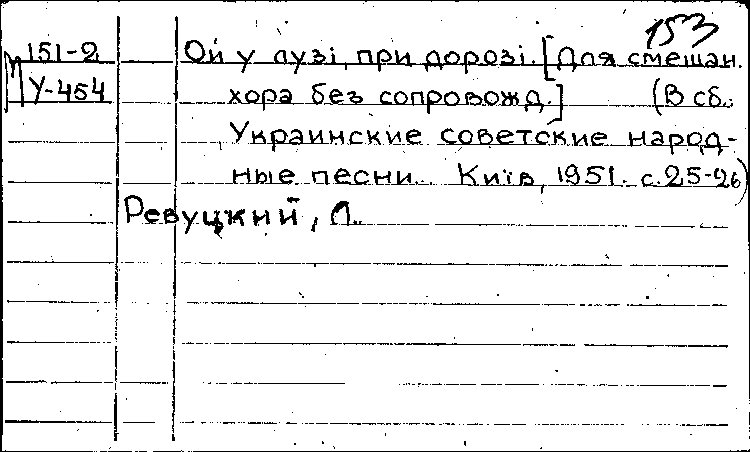 153
151-2 Ой у лузі, при дорозі. [Для смешан.
М У-454 хора без сопровожд.] (В сб.:
Украинские советские народ-
ные песни. Київ, 1951. с. 25-26)
Ревуцкий, Л.